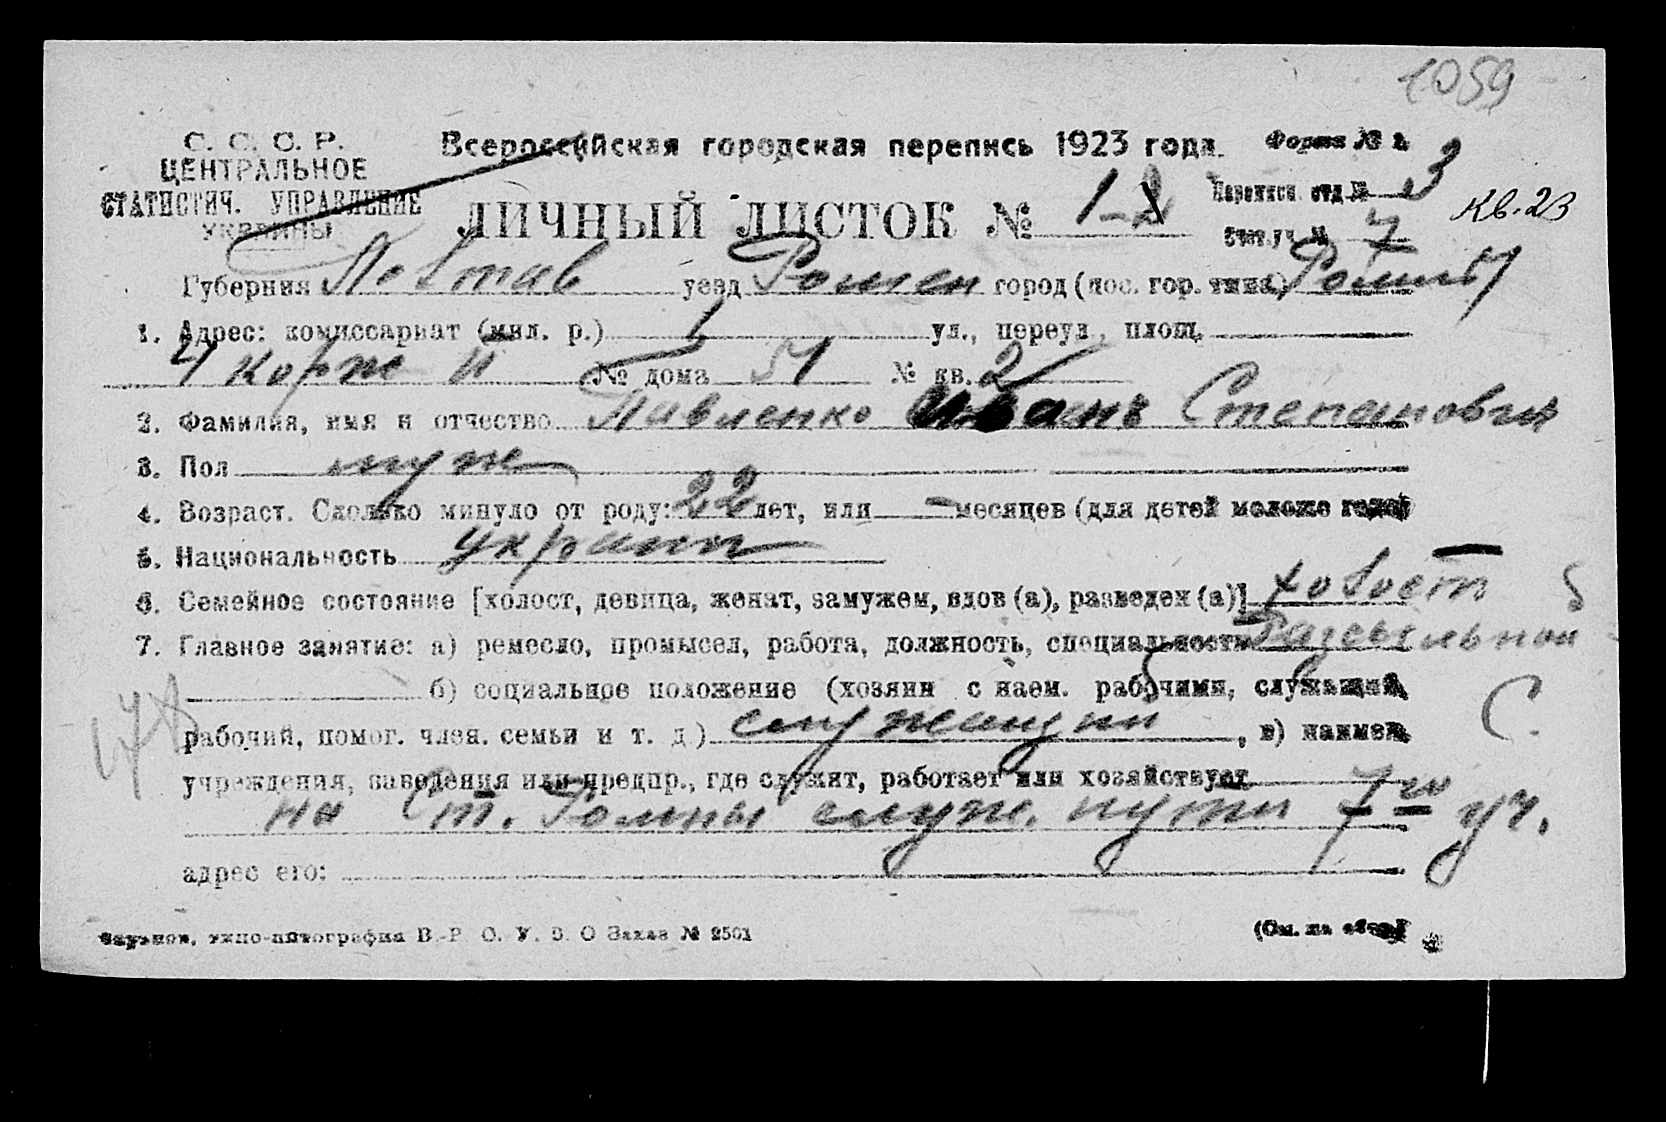 1059
С. С. С. Р.
ЦЕНТРАЛЬНОЕ
СТАТИСТИЧ. УПРАВЛЕНИЕ
УКРАИНЫ
Всероссийская городская перепись 1923 года.
Форма № 2.
ЛИЧНЫЙ ЛИСТОК № 1-2
Переписн. отд. № 3
Счетн. уч. № 7
Кв. 23
Губерния Полтав уезд Ромен город (пос. гор. типа) Ромны
1. Адрес: комиссариат (мил. р.) 1 ул., переул., площ.
4 Корж № дома 51 № кв. 2
2. Фамилия, имя и отчество Павленко Иван Степанович
3. Пол муж
4. Возраст. Сколько минуло от роду: 22 лет, или - месяцев (для детей моложе года)
5. Национальность украин
6. Семейное состояние [холост, девица, женат, замужем, вдов (а), разведен (а)] холост
7. Главное занятие: а) ремесло, промысел, работа, должность, специальность Рассыльный
б) социальное положение (хозяин с наем. рабочими, служащий,
рабочий, помог. член. семьи и т. д.) служащий, в) наимен.
учреждения, заведения или предпр., где служит, работает или хозяйствует
на Ст. Ромны служ. пути 7го уч.
адрес его:
С.
В.-Р. О. У. З. О Заказ № 2501
(См. на обор.)